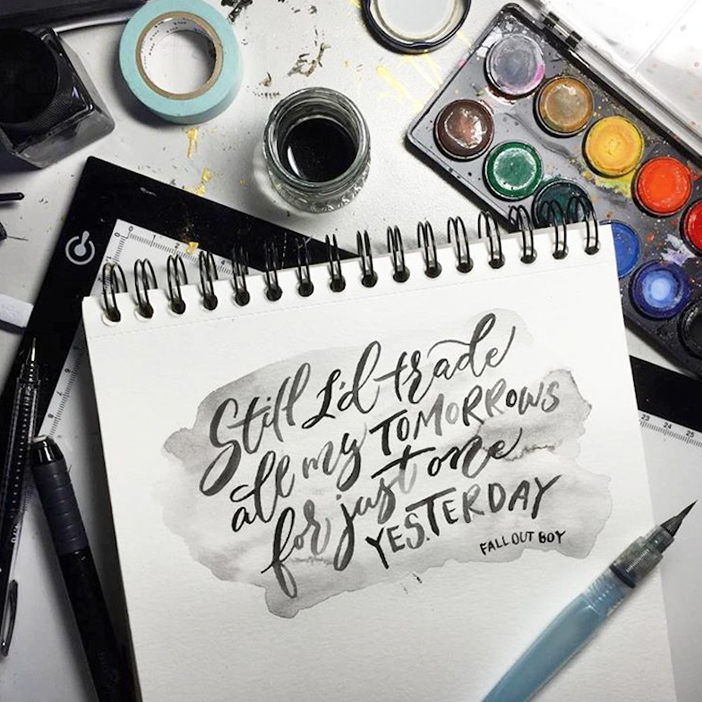 Still I'd trade
all my TOMORROWS
for just one
YESTERDAY
FALL OUT BOY